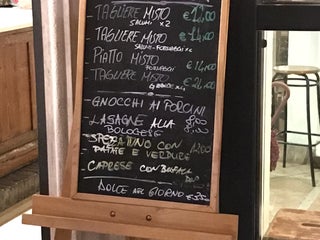 TAGLIERE MISTO €12,00
SALUMI x2
TAGLIERE MISTO €14,00
SALUMI - FORMAGGI x2
PIATTO MISTO €14,00
FORMAGGI
TAGLIERE MISTO
- GNOCCHI AI PORCINI
- LASAGNE ALLA 8,00
BOLOGNESE
CON
PATATE E VERDURE
- CAPRESE CON BUFALA
DOLCE DEL GIORNO